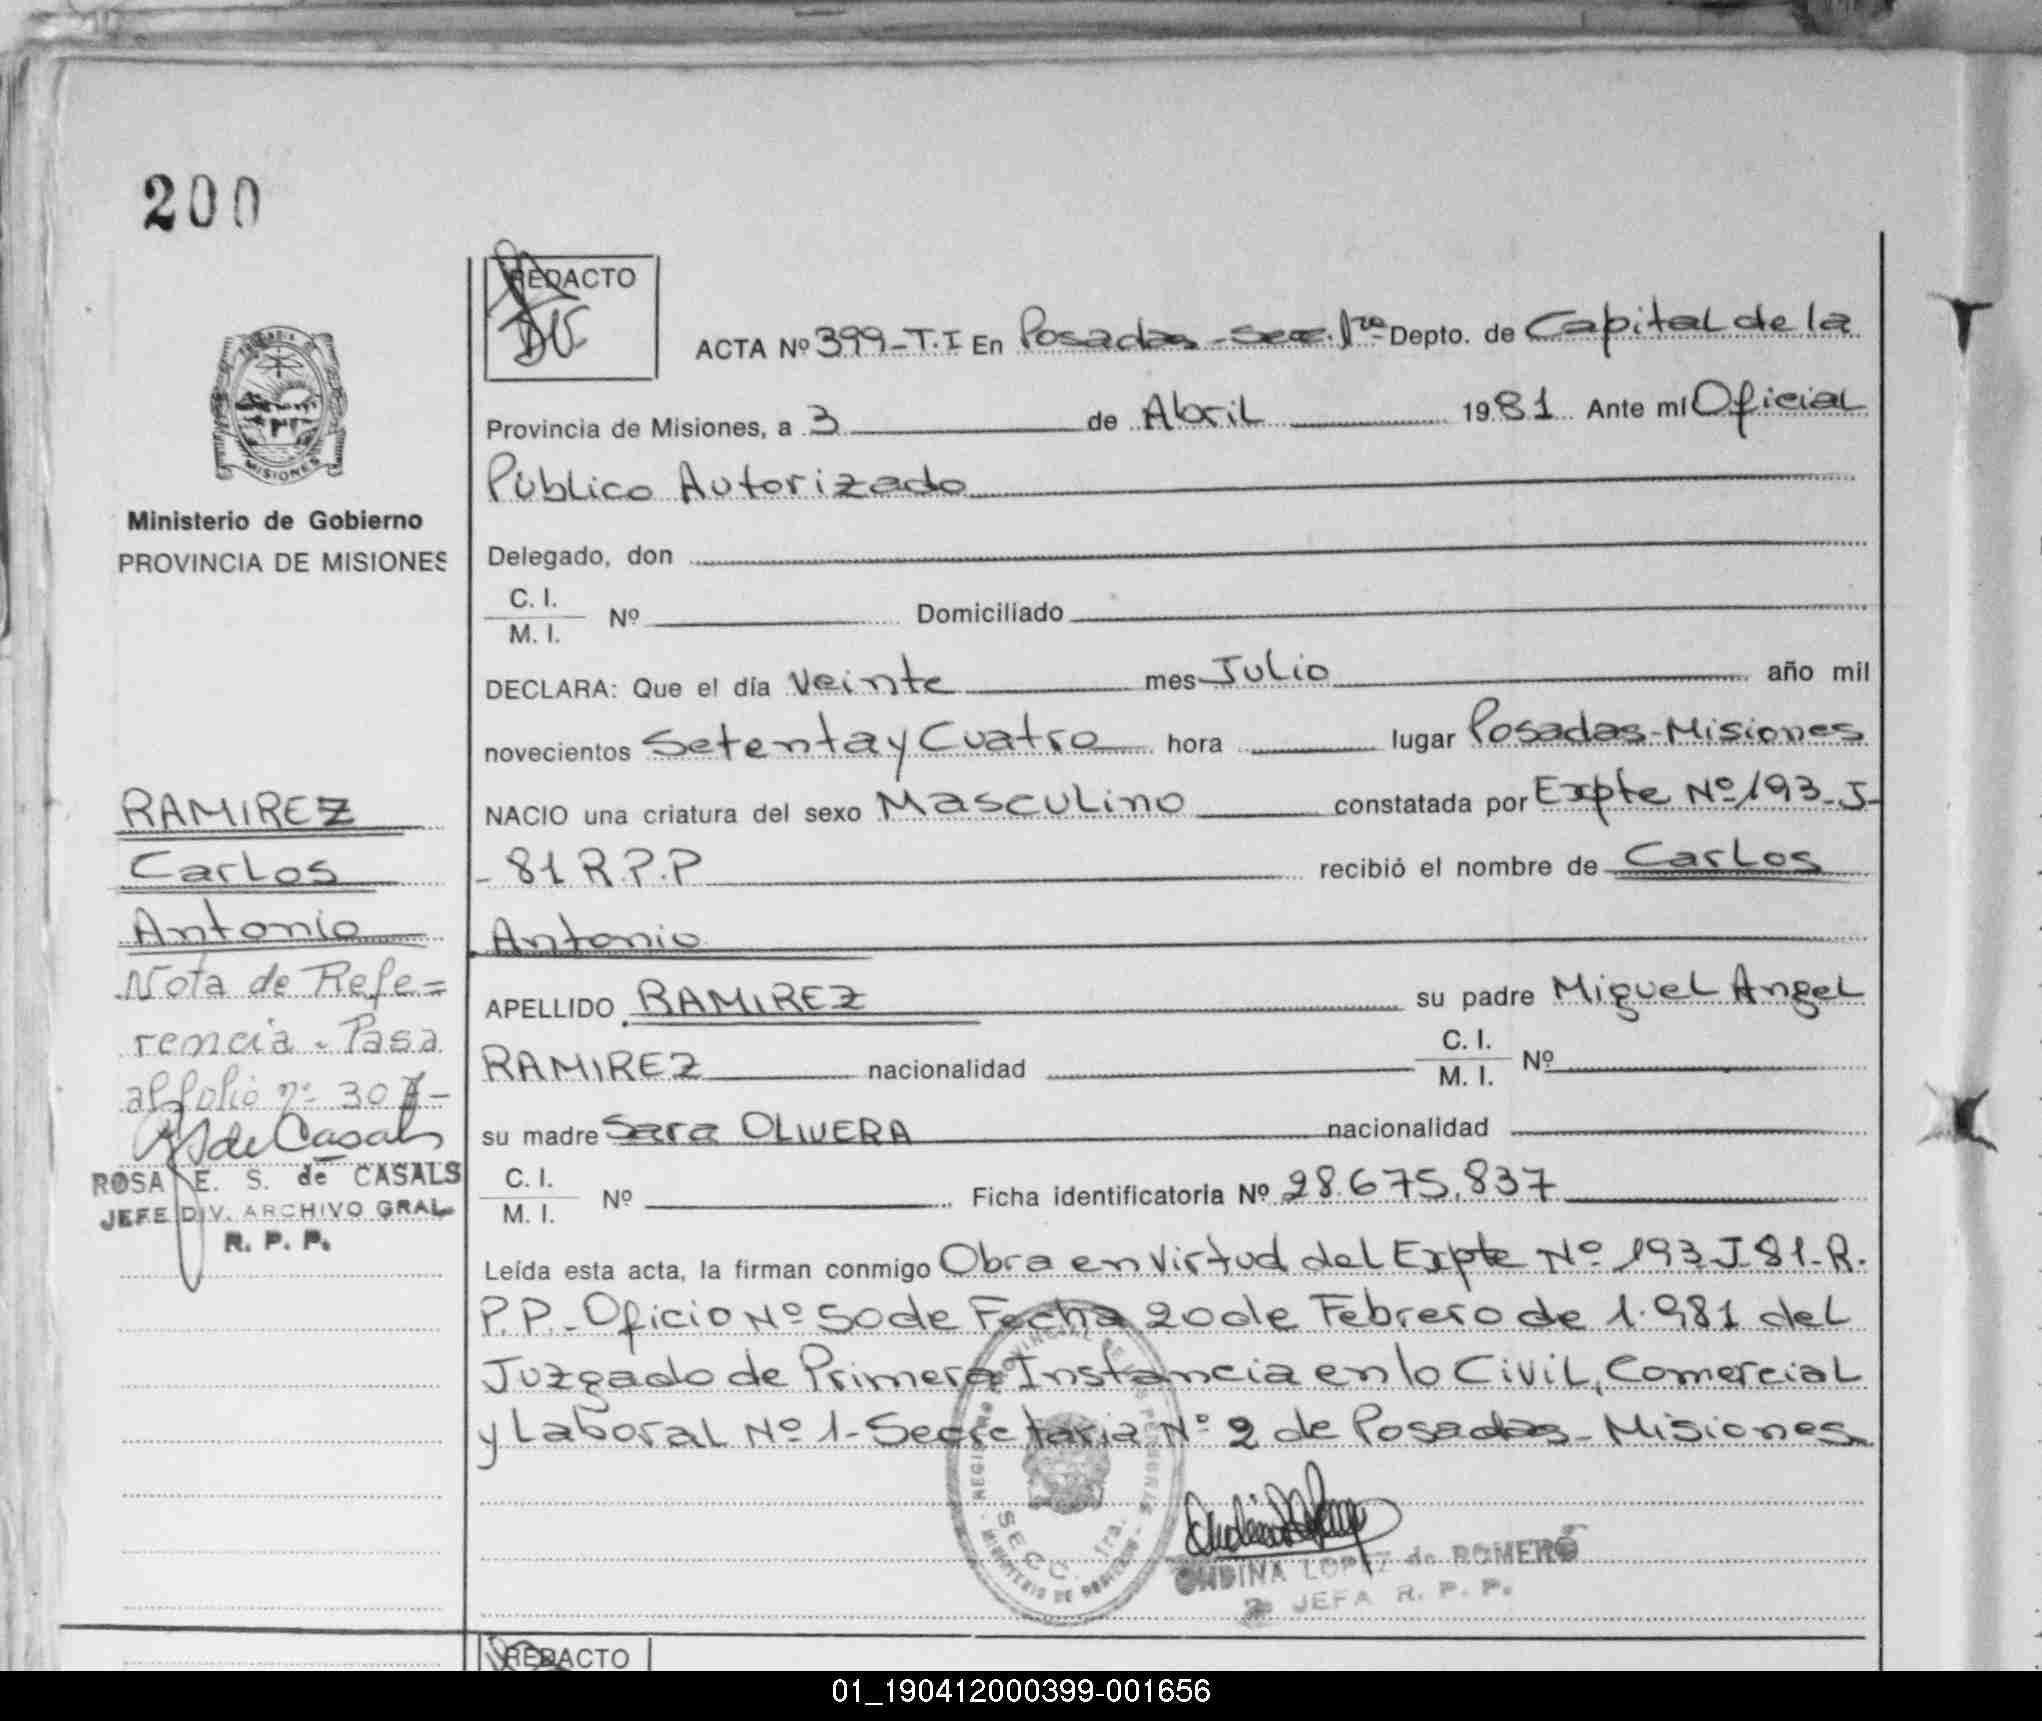 200
MISIONES
Ministerio de Gobierno
PROVINCIA DE MISIONES
RAMIREZ
Carlos
Antonio
Nota de Refe=
rencia - Pasa
al folio nº 307-
RSdeCasals
ROSA E. S. de CASALS
JEFE DIV. ARCHIVO GRAL.
R. P. P.
REDACTO
ACTA Nº 399-T.I En Posadas-Sec. 1ra Depto. de Capital de la
Provincia de Misiones, a 3 de Abril 1981 Ante mí Oficial
Público Autorizado
Delegado, don
C. I.
M. I. Nº Domiciliado
DECLARA: Que el día Veinte mes Julio año mil
novecientos Setenta y Cuatro hora lugar Posadas-Misiones
NACIO una criatura del sexo Masculino constatada por Expte Nº 193-J-
-81 R.P.P recibió el nombre de Carlos
Antonio
APELLIDO RAMIREZ su padre Miguel Angel
RAMIREZ nacionalidad C. I.
M. I. Nº
su madre Sara OLIVERA nacionalidad
C. I.
M. I. Nº Ficha identificatoria Nº 28.675.837
Leída esta acta, la firman conmigo Obra en Virtud del Expte Nº 193-J-81-R.
P.P.-Oficio Nº 50 de Fecha 20 de Febrero de 1.981 del
Juzgado de Primera Instancia en lo Civil, Comercial
y Laboral Nº 1-Secretaria Nº 2 de Posadas-Misiones
REGISTRO PROVINCIAL DE LAS PERSONAS
SECC. 1ra.
MINISTERIO DE GOBIERNO
ONDINA LOPEZ de ROMERO
JEFA R. P. P.
REDACTO
01_190412000399-001656